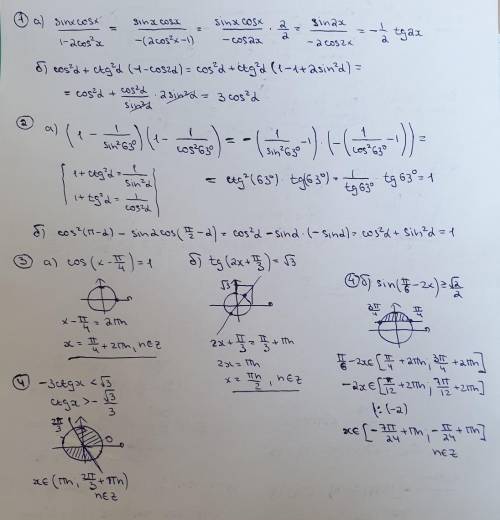 ① а) sinxcosx/(1-2cos²x) = sinxcosx/(-(2cos²x-1)) = sinxcosx/(-cos2x) · 2/2 = sin2x/(-2cos2x) = -1/2 tg2x
б) cos²α + ctg²α (1-cos2α) = cos²α + ctg²α (1-1+2sin²α) =
= cos²α + cos²α/sin²α · 2sin²α = 3cos²α
② а) (1 - 1/sin²63°)(1 - 1/cos²63°) = -(1/sin²63° -1) · (-(1/cos²63° -1)) =
{ 1 + ctg²α = 1/sin²α
1 + tg²α = 1/cos²α }
= ctg²(63°) · tg(63°) = 1/tg63° · tg63° = 1
б) cos²(π-α) - sinαcos(π/2 -α) = cos²α - sinα · (-sinα) = cos²α + sin²α = 1
③ а) cos(x - π/4) = 1
x - π/4 = 2πn
x = π/4 + 2πn, n∈Z
б) tg(2x + π/3) = √3
√3
2x + π/3 = π/3 + πn
2x = πn
x = πn/2, n∈Z
④ б) sin(π/6 - 2x) ≥ √2/2
3π/4 π/4
π/6 - 2x ∈ [π/4 + 2πn, 3π/4 + 2πn]
-2x ∈ [π/12 + 2πn, 7π/12 + 2πn]
|:(-2)
x ∈ [-7π/24 + πn, -π/24 + πn]
n∈Z
④ -3ctgx < √3
ctgx > -√3/3
2π/3 0
x ∈ (πn, 2π/3 + πn)
n∈Z